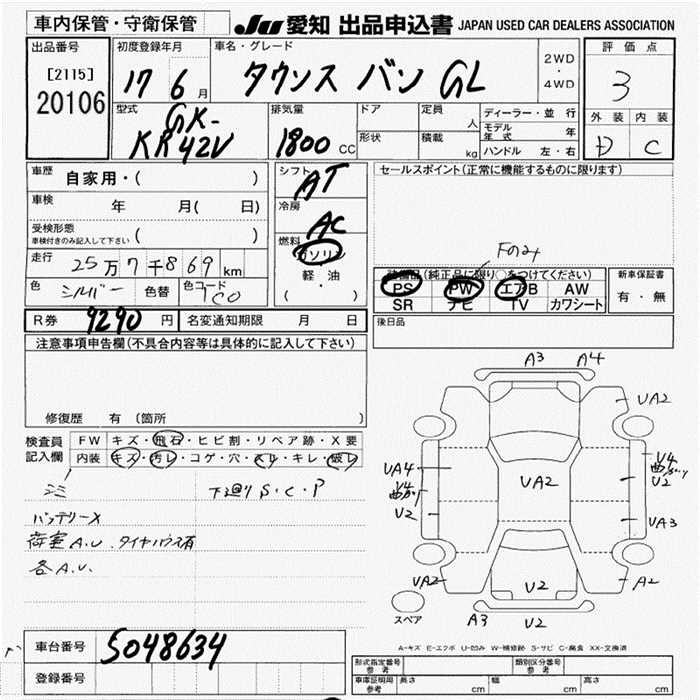 車内保管・守衛保管
JU 愛知 出品申込書 JAPAN USED CAR DEALERS ASSOCIATION
出品番号
[2115]
20106
初度登録年月
17 6月
車名・グレード
タウンス バン GL
2WD
・
4WD
評価点
3
外装 内装
D C
型式
GK-
KR42V
排気量
1800 CC
ドア
形状
定員
人
積載
kg
ディーラー・並行
モデル年式 年
ハンドル 左・右
車歴
自家用・( )
車検
年 月(日)
受検形態
車検付きのみ記入して下さい ( )
走行
25万7千869km
色 シルバー 色替 色コード
シフト
AT
冷房
AC
燃料
ガソリン
軽・油
( )
セールスポイント(正常に機能するものに限ります)
Fのみ
装備品(純正品に限り○をつけてください)
PS PW エアB AW
SR ナビ TV カワシート
新車保証書
有・無
R券 9290円 名変通知期限 月 日
後日品
注意事項申告欄(不具合内容等は具体的に記入して下さい)
修復歴 有 (箇所 )
検査員
記入欄
FW キズ・飛石・ヒビ割・リペア跡・X要
内装 キズ・汚レ・コゲ・穴・スレ・キレ・破レ
下廻り S・C・P
バッテリーX
荷室A.U. タイヤハウス有
各A.U.
A3 A4
UA2
UA4
V4
U2
UA2
V4
U2
UA3
UA2
U2
A2
A3
U2
スペア
A-キズ E-エクボ U-凹み W-補修跡 S-サビ C-腐食 XX-交換済
車台番号 5048634
登録番号
形式指定番号
参考
類別区分番号
参考
車庫証明用
参考
長さ cm 幅 cm 高さ cm